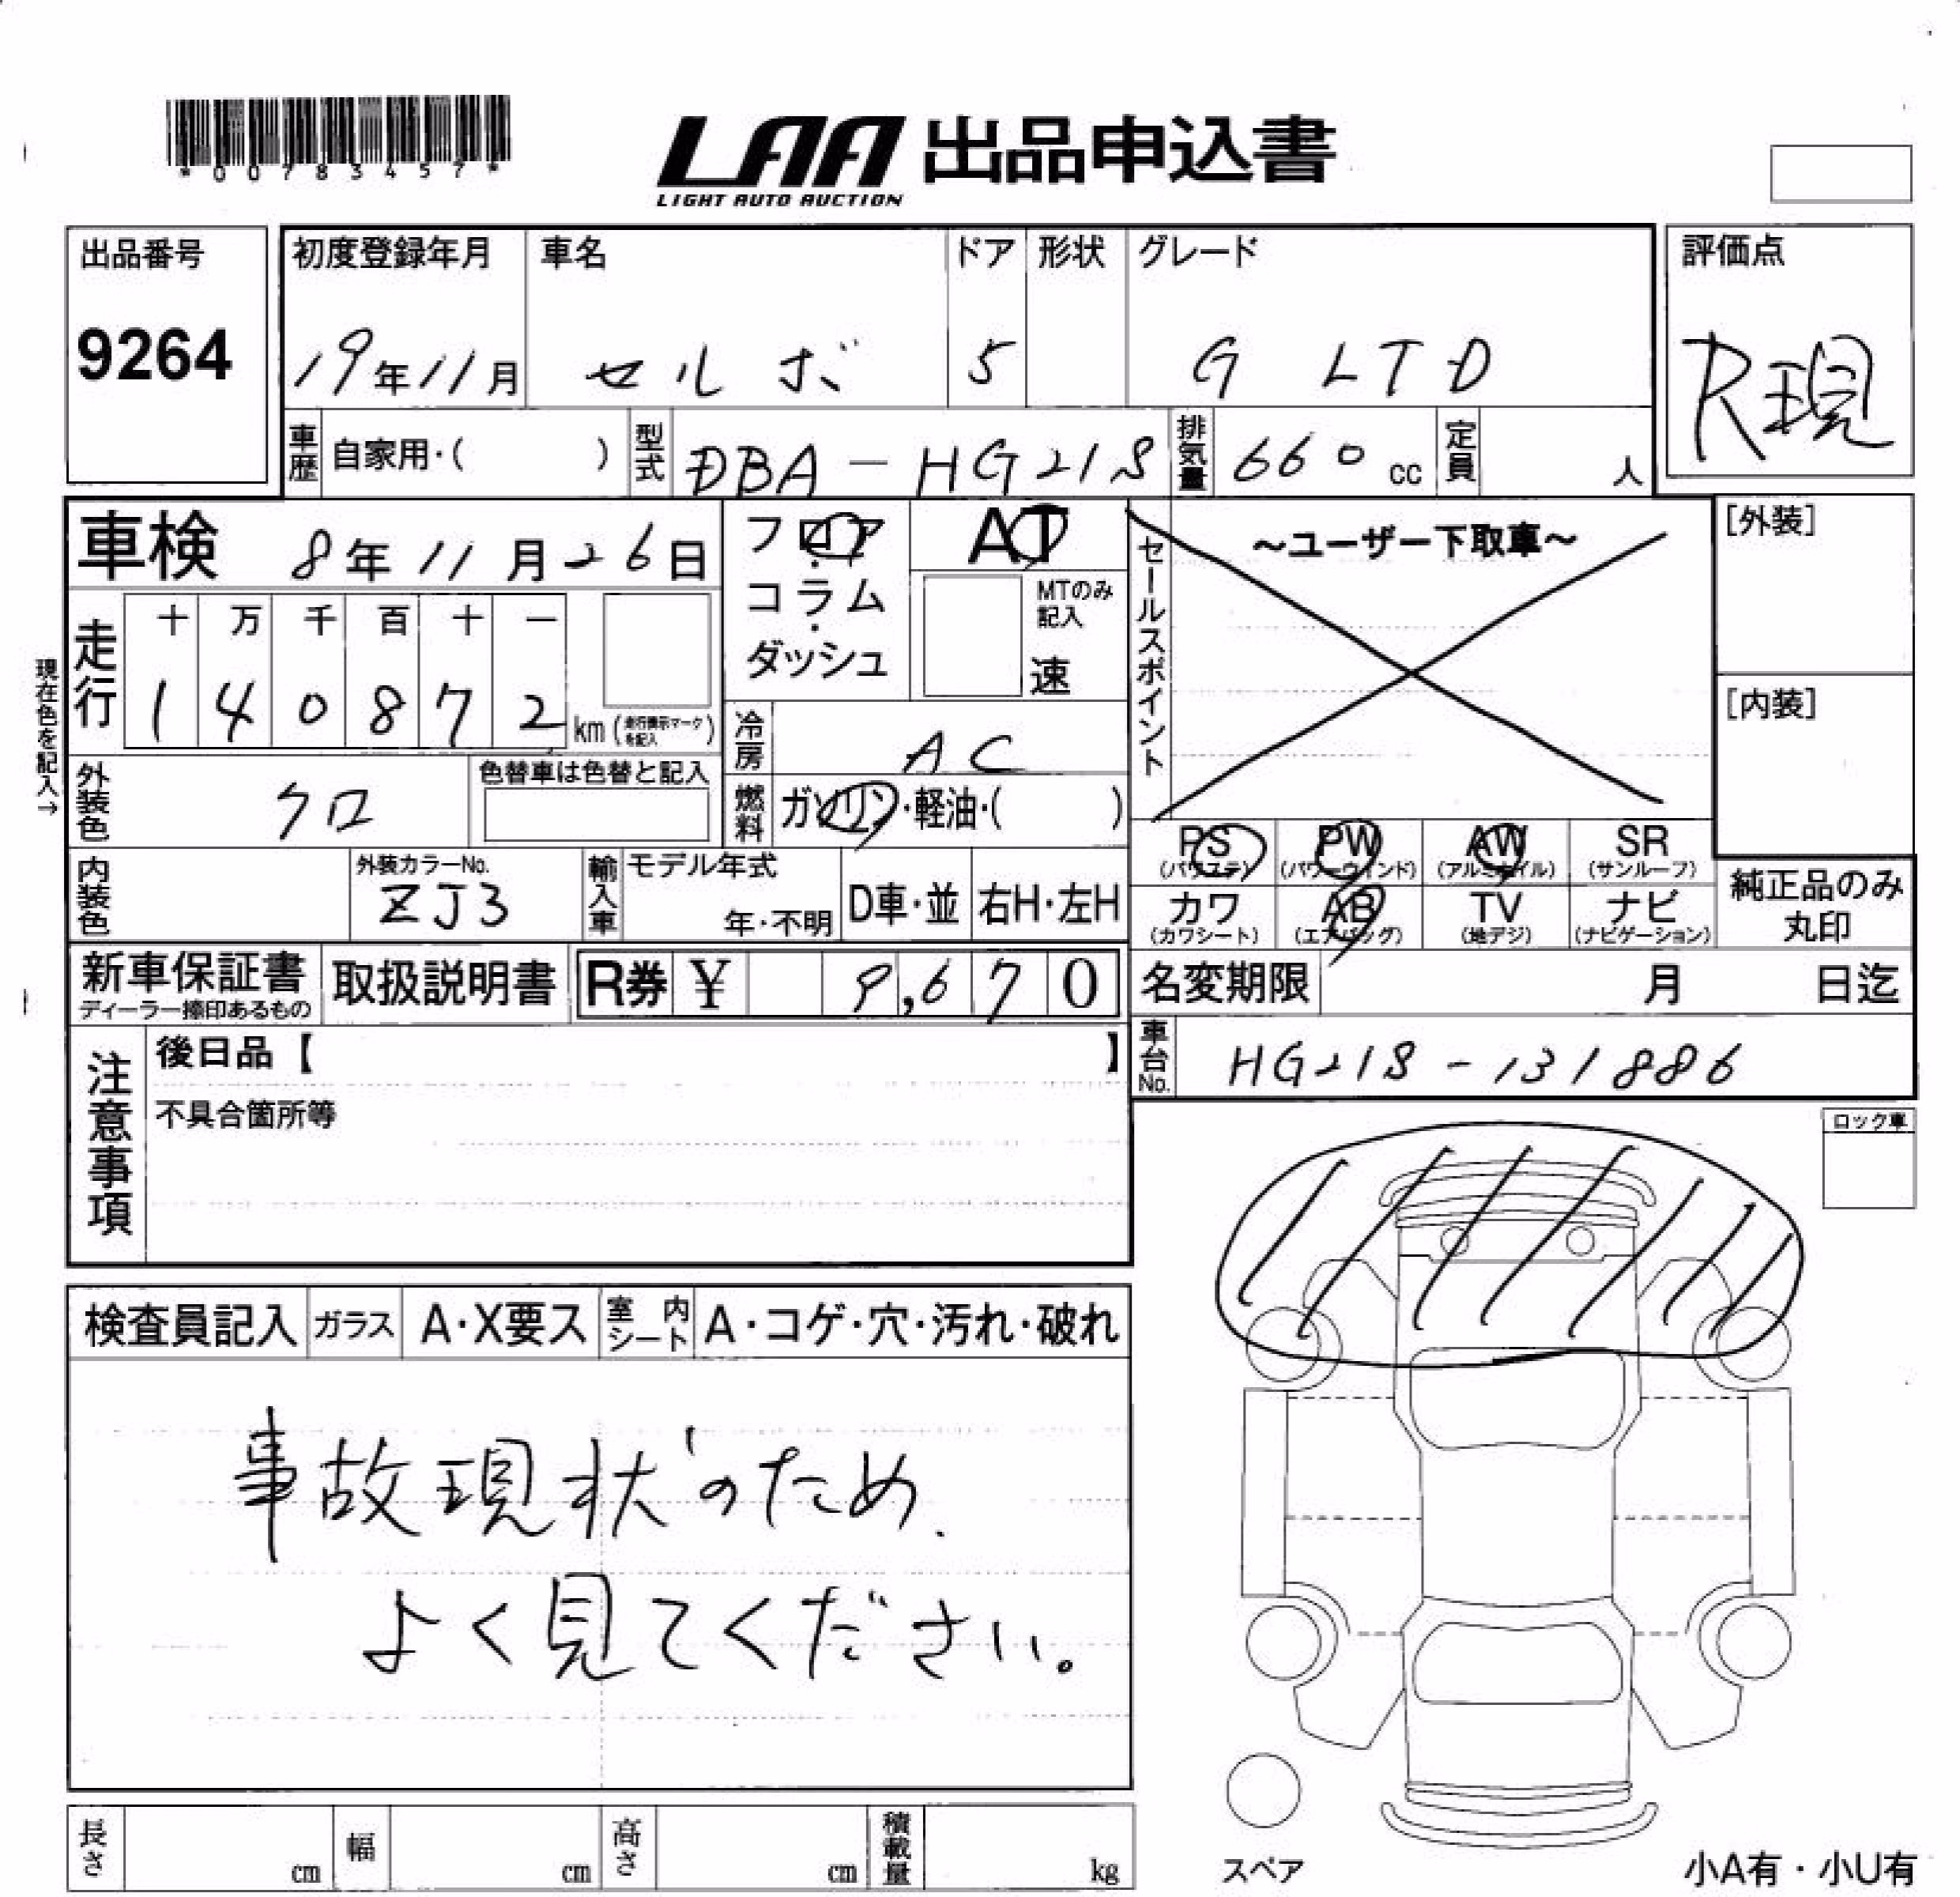 *00783457*
LAA 出品申込書
LIGHT AUTO AUCTION
出品番号
9264
初度登録年月
19年11月
車名
セルボ
ドア
5
形状
グレード
G LTD
評価点
R現
車歴 自家用・( )
型式 DBA-HG21S
排気量 660 cc
定員 人
車検 8年11月26日
フロア・コラム・ダッシュ
AT
MTのみ記入
速
セールスポイント
~ユーザー下取車~
[外装]
[内装]
現在色を記入→
走行
十 万 千 百 十 一
1 4 0 8 7 2 km (走行表示マークを記入)
冷房 AC
外装色 クロ
色替車は色替と記入
燃料 ガソリン・軽油・( )
PS (パワステ) PW (パワーウィンド) AW (アルミホイル) SR (サンルーフ)
カワ (カワシート) AB (エアバッグ) TV (地デジ) ナビ (ナビゲーション)
純正品のみ丸印
内装色
外装カラーNo.
ZJ3
輸入車
モデル年式
年・不明
D車・並
右H・左H
新車保証書
ディーラー捺印あるもの
取扱説明書
R券 ¥ 9,670
名変期限 月 日迄
車台No. HG21S-131886
注意事項
後日品【 】
不具合箇所等
ロック車
検査員記入 ガラス A・X要ス 室内シート A・コゲ・穴・汚れ・破れ
事故現状のため、
よく見てください。
長さ cm 幅 cm 高さ cm 積載量 kg
スペア
小A有・小U有